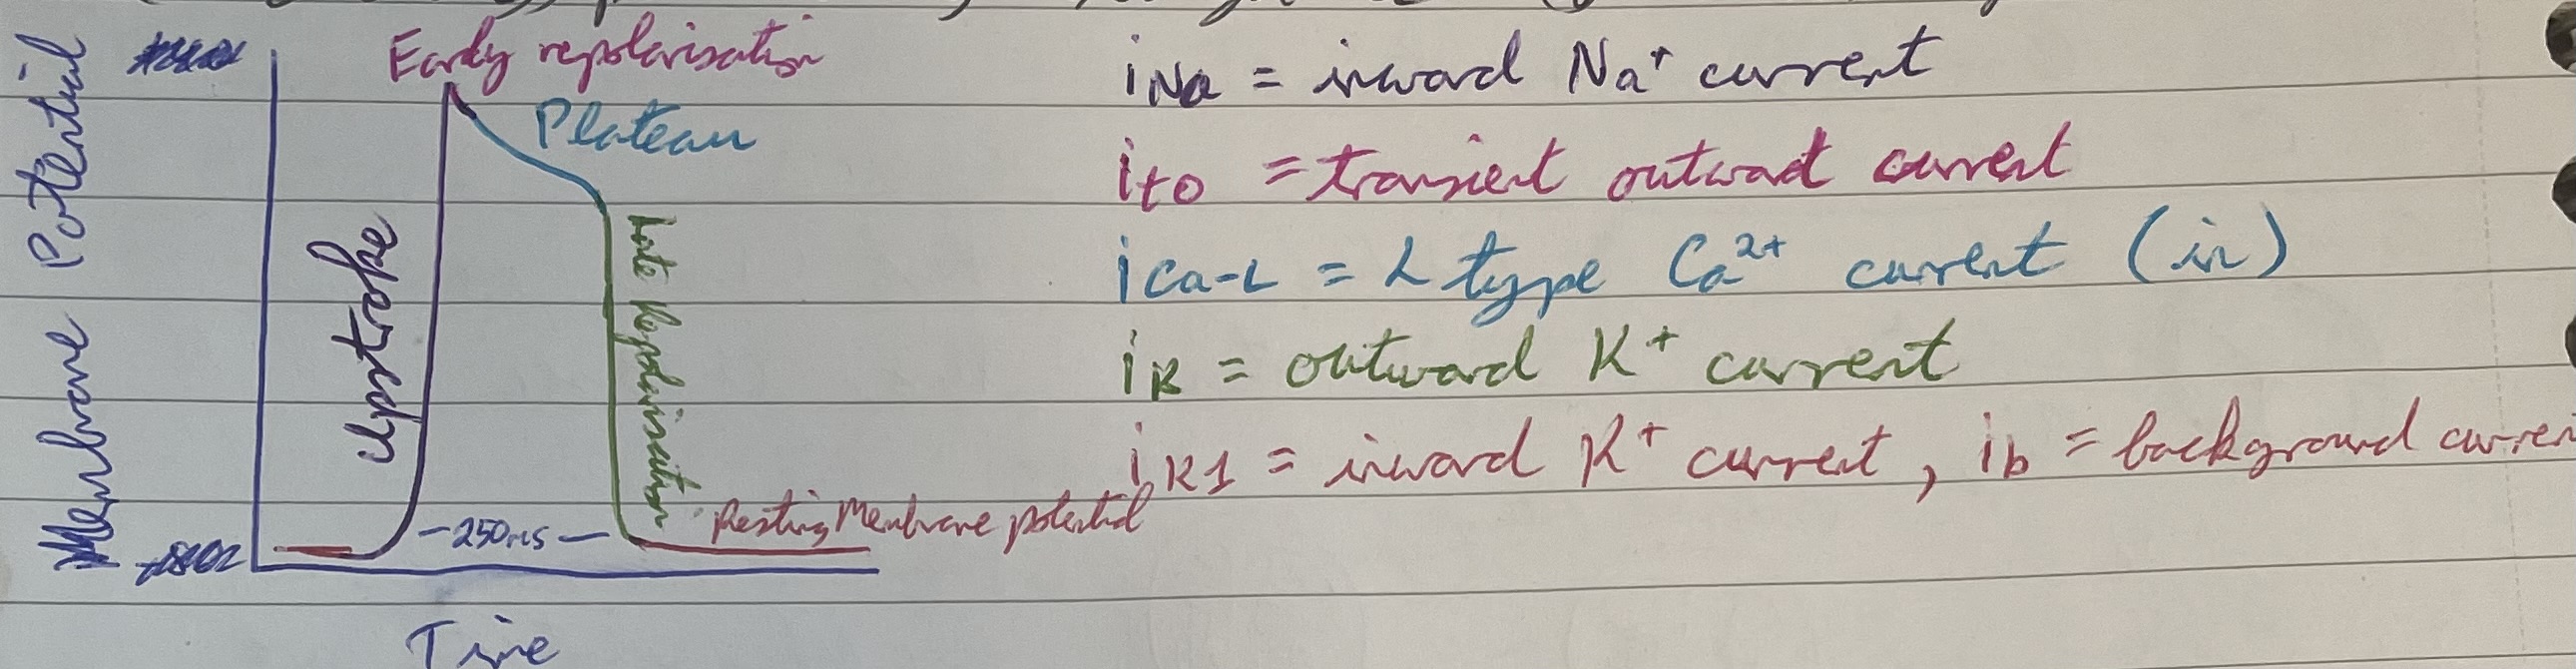 Membrane Potential
Early repolarisation
Plateau
Upstroke
Late Repolarisation
-250ms-
Resting Membrane potential
Time
iNa = inward Na⁺ current
ito = transient outward current
iCa-L = L type Ca²⁺ current (in)
iK = outward K⁺ current
iK1 = inward K⁺ current, ib = background curren